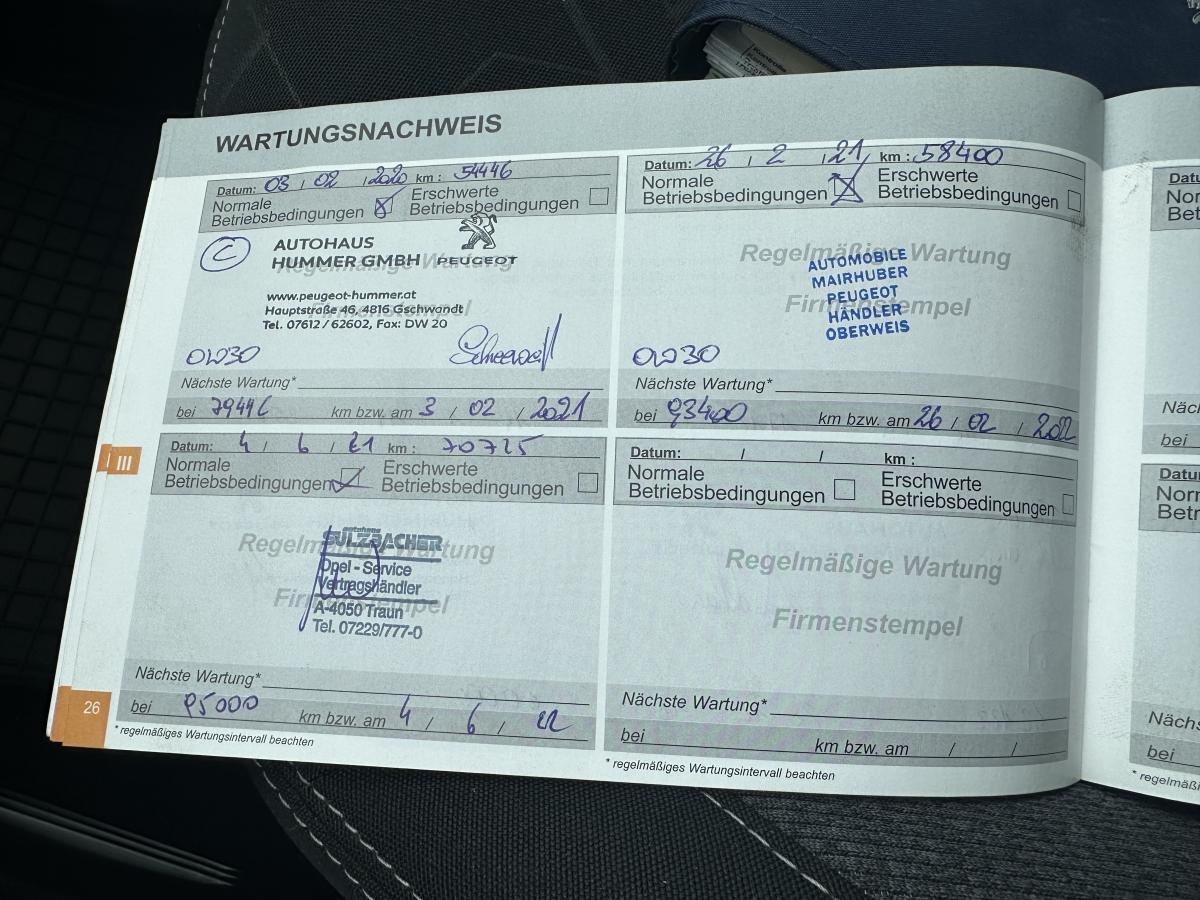 WARTUNGSNACHWEIS
Datum: 03 / 02 / 2020 km : 54446
Normale Betriebsbedingungen
Erschwerte Betriebsbedingungen
C
AUTOHAUS
HUMMER GMBH PEUGEOT
Regelmäßige Wartung
www.peugeot-hummer.at
Firmenstempel
Hauptstraße 46, 4816 Gschwandt
Tel. 07612 / 62602, Fax: DW 20
0W30
Nächste Wartung*
bei 79446 km bzw. am 3 / 02 / 2021
Datum: 26 / 2 / 21 km : 58400
Normale Betriebsbedingungen
Erschwerte Betriebsbedingungen
Regelmäßige Wartung
Firmenstempel
AUTOMOBILE
MAIRHUBER
PEUGEOT
HÄNDLER
OBERWEIS
0W30
Nächste Wartung*
bei 93400 km bzw. am 26 / 02 / 2022
III
Datum: 4 / 6 / 21 km : 70725
Normale Betriebsbedingungen
Erschwerte Betriebsbedingungen
Regelmäßige Wartung
Firmenstempel
autohaus
SULZBACHER
Opel - Service
Vertragshändler
A-4050 Traun
Tel. 07229/777-0
Nächste Wartung*
bei 95000 km bzw. am 4 / 6 / 22
* regelmäßiges Wartungsintervall beachten
Datum: / / km :
Normale Betriebsbedingungen
Erschwerte Betriebsbedingungen
Regelmäßige Wartung
Firmenstempel
Nächste Wartung*
bei km bzw. am / /
* regelmäßiges Wartungsintervall beachten
26